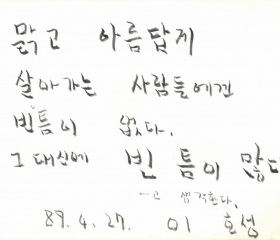 맑고 아름답게
살아가는 사람들에겐
빈틈이 없다.
그 대신에 빈 틈이 많다
—고 생각한다.
89. 4. 27. 이 호성